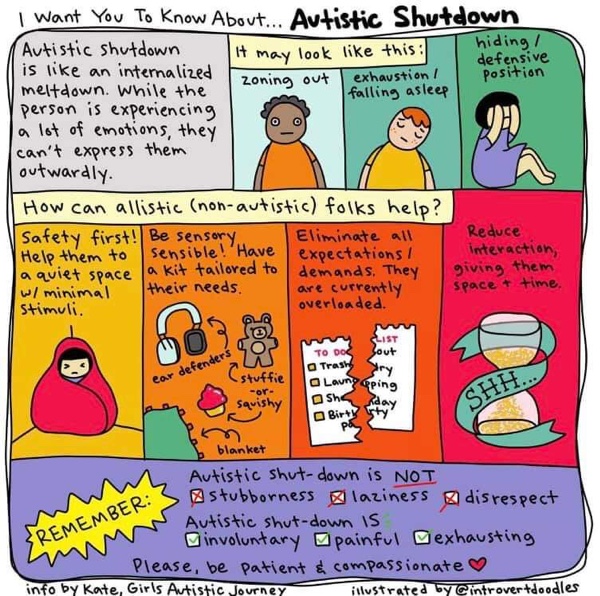 I Want You To Know About... Autistic Shutdown
Autistic shutdown
is like an internalized
meltdown. While the
person is experiencing
a lot of emotions, they
can't express them
outwardly.
It may look like this:
zoning out
exhaustion /
falling asleep
hiding /
defensive
position
How can allistic (non-autistic) folks help?
Safety first!
Help them to
a quiet space
w/ minimal
stimuli.
Be sensory
sensible! Have
a kit tailored to
their needs.
ear defenders
stuffie
-or-
squishy
blanket
Eliminate all
expectations /
demands. They
are currently
overloaded.
TO DO LIST
Trash out
Laun dry
Sh pping
Birth day
Pa rty
Reduce
interaction,
giving them
space + time.
SHH...
REMEMBER:
Autistic shut-down is NOT
stubbornness laziness disrespect
Autistic shut-down IS:
involuntary painful exhausting
Please, be patient & compassionate
info by Kate, Girls Autistic Journey
illustrated by @introvertdoodles